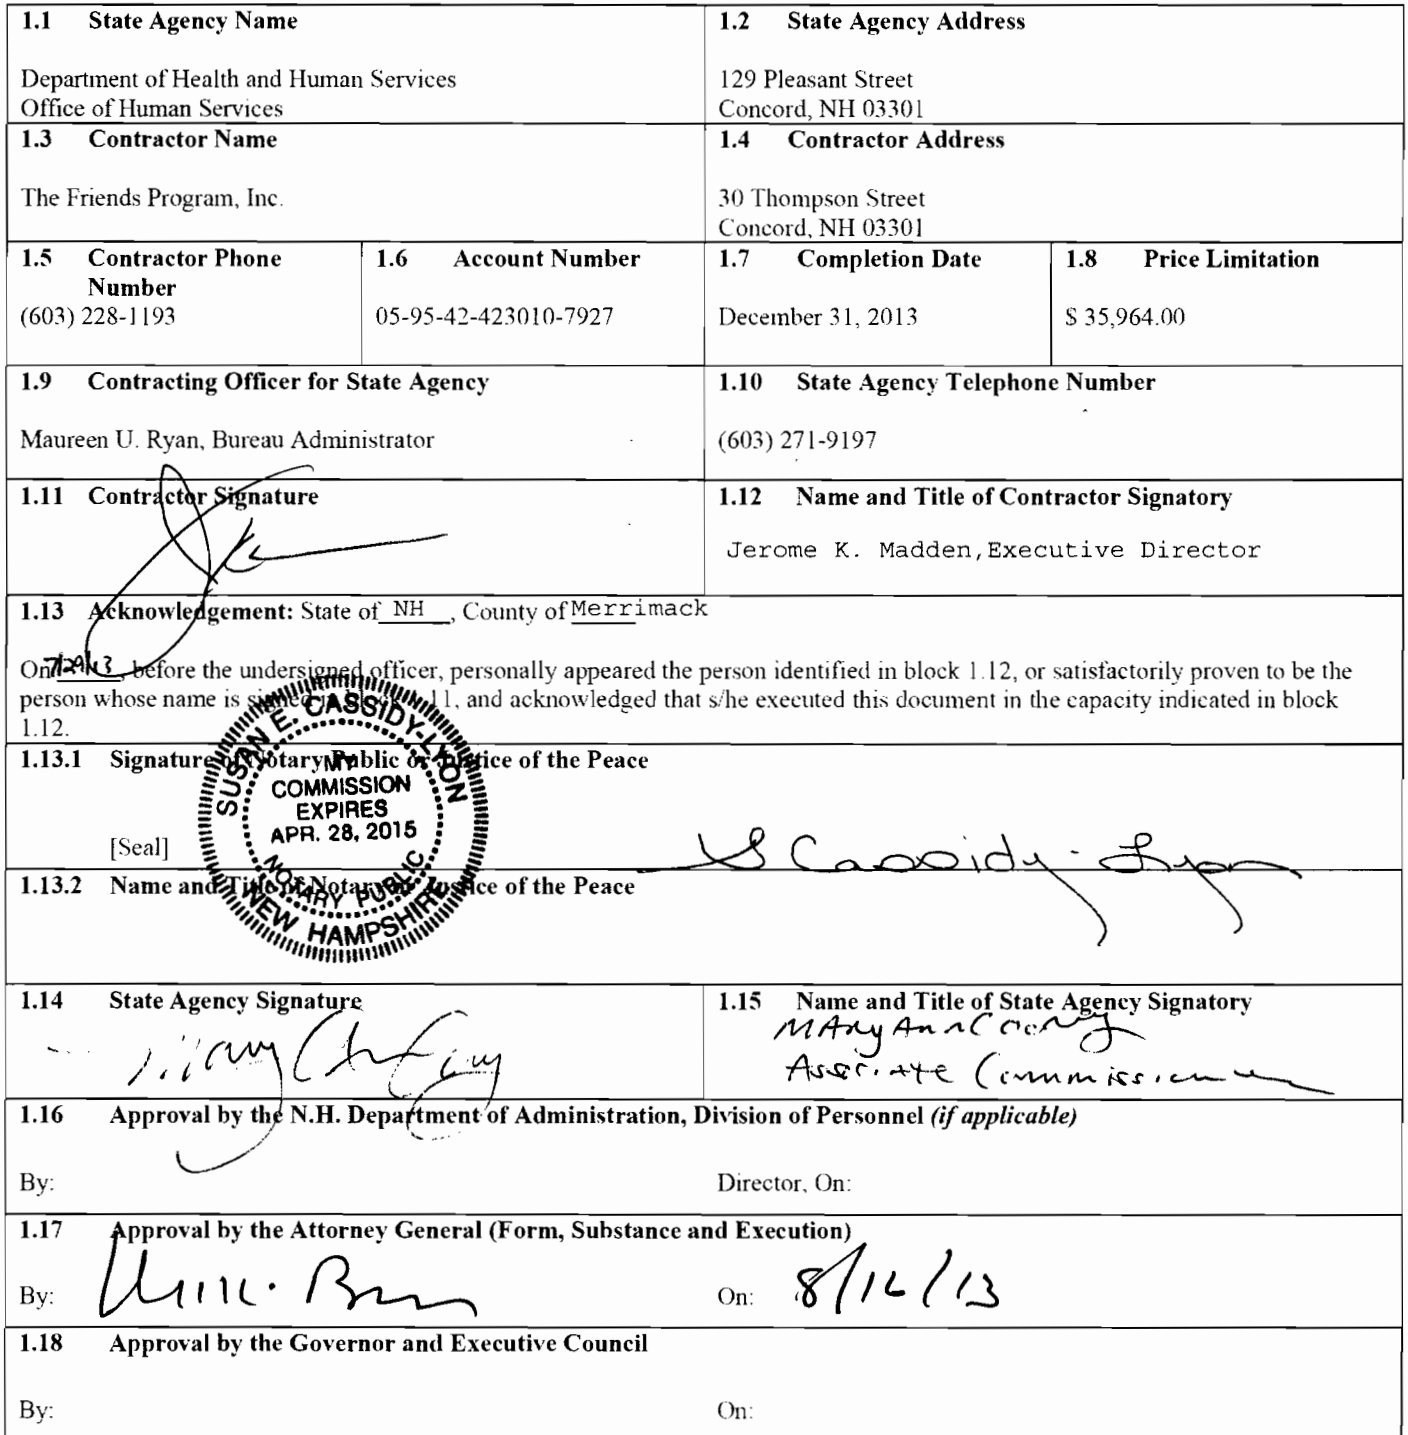 1.1 State Agency Name
Department of Health and Human Services
Office of Human Services
1.2 State Agency Address
129 Pleasant Street
Concord, NH 03301
1.3 Contractor Name
The Friends Program, Inc.
1.4 Contractor Address
30 Thompson Street
Concord, NH 03301
1.5 Contractor Phone
Number
(603) 228-1193
1.6 Account Number
05-95-42-423010-7927
1.7 Completion Date
December 31, 2013
1.8 Price Limitation
$ 35,964.00
1.9 Contracting Officer for State Agency
Maureen U. Ryan, Bureau Administrator
1.10 State Agency Telephone Number
(603) 271-9197
1.11 Contractor Signature
1.12 Name and Title of Contractor Signatory
Jerome K. Madden,Executive Director
1.13 Acknowledgement: State of NH , County of Merrimack
On 7/29/13, before the undersigned officer, personally appeared the person identified in block 1.12, or satisfactorily proven to be the
person whose name is signed in block 1.11, and acknowledged that s/he executed this document in the capacity indicated in block
1.12.
1.13.1 Signature of Notary Public or Justice of the Peace
SUSAN E. CASSIDY-LYON
MY
COMMISSION
EXPIRES
APR. 28, 2015
NOTARY PUBLIC
NEW HAMPSHIRE
[Seal]
S Cassidy-Lyon
1.13.2 Name and Title of Notary or Justice of the Peace
1.14 State Agency Signature
1.15 Name and Title of State Agency Signatory
Mary Ann Cooney
Associate Commissioner
1.16 Approval by the N.H. Department of Administration, Division of Personnel (if applicable)
By:
Director, On:
1.17 Approval by the Attorney General (Form, Substance and Execution)
By:
On: 8/12/13
1.18 Approval by the Governor and Executive Council
By:
On: